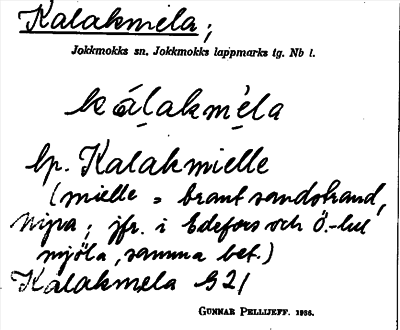 Kalakmela;
Jokkmokks sn. Jokkmokks lappmarks tg. Nb l.
kálakmèla
lp. Kalakmielle
(mielle = brant sandstrand,
nipa; jfr. i Edefors och Ö.-lul
mjöla, samma bet.)
Kalakmela S 21
GUNNAR PELLIJEFF. 1956.